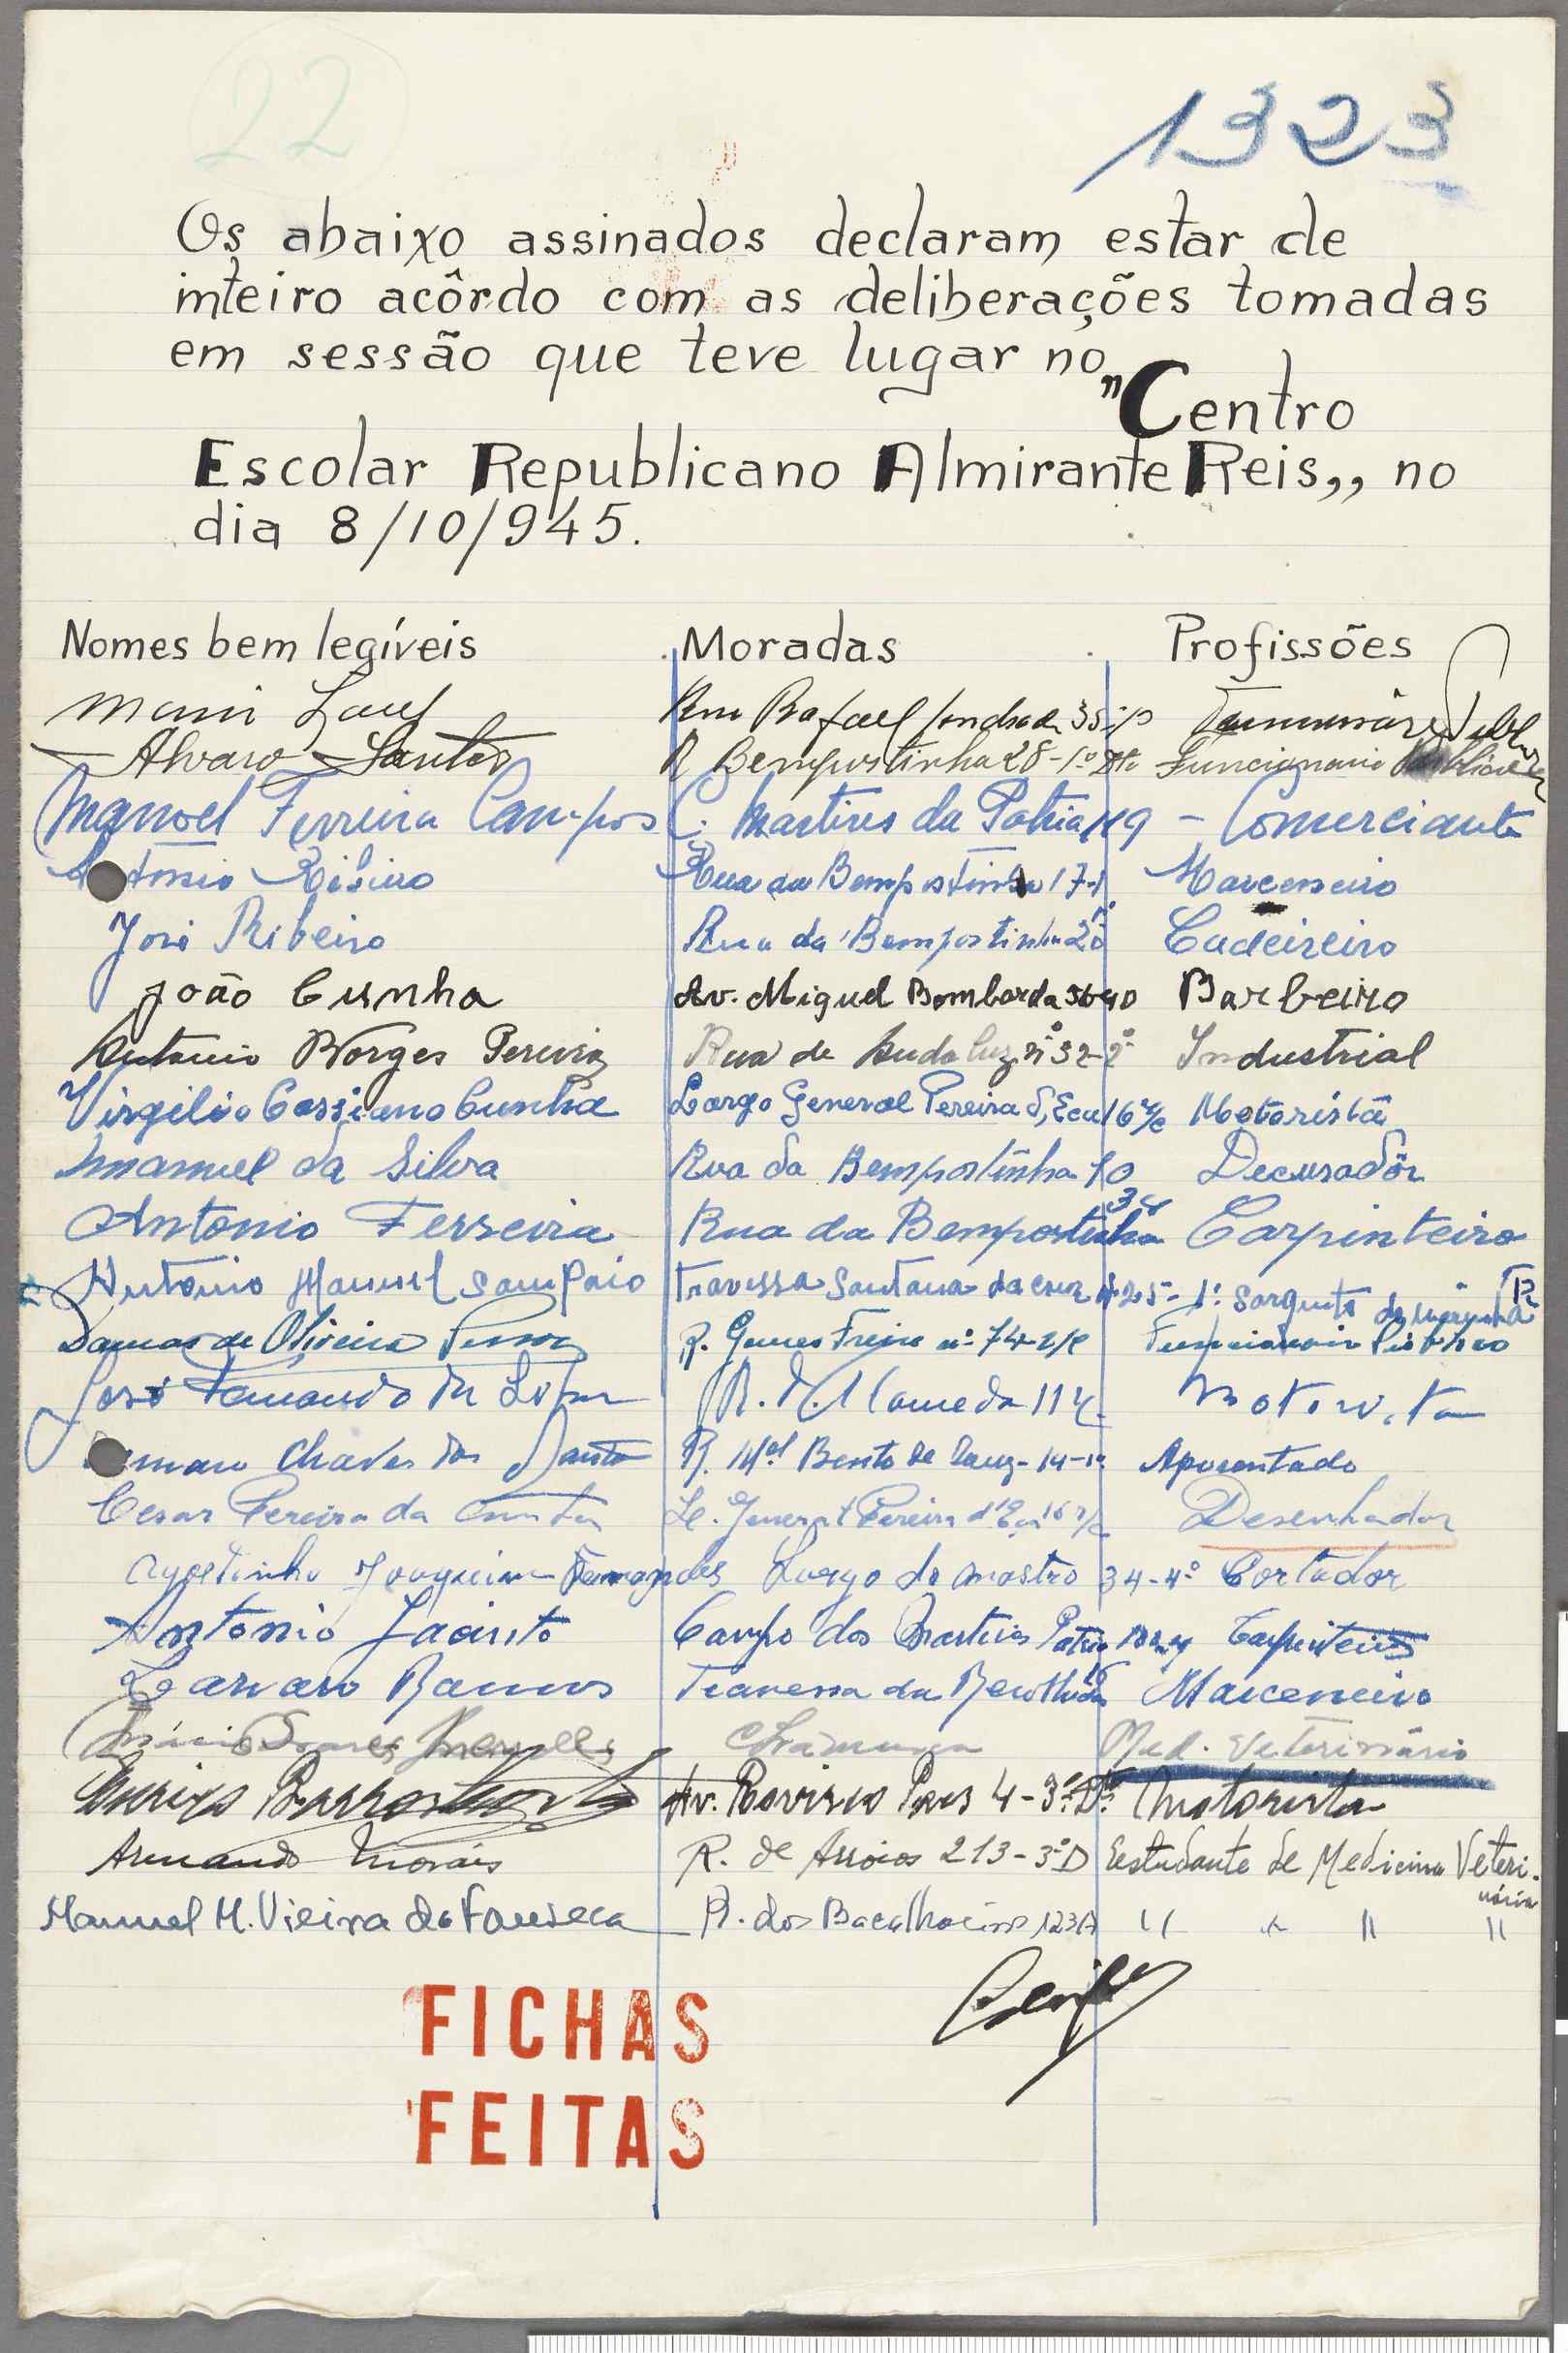 22
1323
Os abaixo assinados declaram estar de
inteiro acôrdo com as deliberações tomadas
em sessão que teve lugar no
"Centro
Escolar Republicano Almirante Reis,, no
dia 8/10/945.
Nomes bem legíveis Moradas Profissões
Rua Rafael Andrade 35
Alvaro Santos R Bempostinha 28-1º Dto Funcionario Publico
Manoel Ferreira Campos C. Martires da Patria 119 - Comerciante
António Ribeiro Rua da Bempostinha 17-1 Marceneiro
José Ribeiro Rua da Bempostinha 20 Cadeireiro
João Cunha Av. Miguel Bombarda Barbeiro
Antonio Borges Pereira Rua de Andaluz nº 32-2º Industrial
Virgilio Cassiano Cunha Largo General Pereira d'Eça 16 r/c Motorista
Manuel da Silva Rua da Bempostinha 10 Decuradôr
Antonio Ferreira Rua da Bempostinha Carpinteiro
Antonio Manuel Sampaio Travessa Santana da Cruz nº 25- 1º Sargento da Marinha
Damas de Oliveira R. Gomes Freire nº 74-r/c Funcionario Publico
José Fernando da R. d. Alameda 11 Motorista
Chaves dos Santos R. Mel Bento de 14-1º Aposentado
Cesar Pereira da Cunha L. General Pereira d'Eça 16 r/c Desenhador
Agostinho Joaquim Fernandes Largo do Mastro 34-4º Cortador
Antonio Jacinto Campo dos Martires Patria Carpinteiro
Ramos Travessa da Marceneiro
Soares Chamusca Med. Veterinário
Av. Rovisco Pais 4-3º Dto Motorista
Armando Morais R. de Arroios 213-3º D Estudante de Medicina Veteri-
nária
Manuel M. Vieira da Fonseca R. dos Bacalhoeiros 123A " " " "
FICHAS
FEITAS